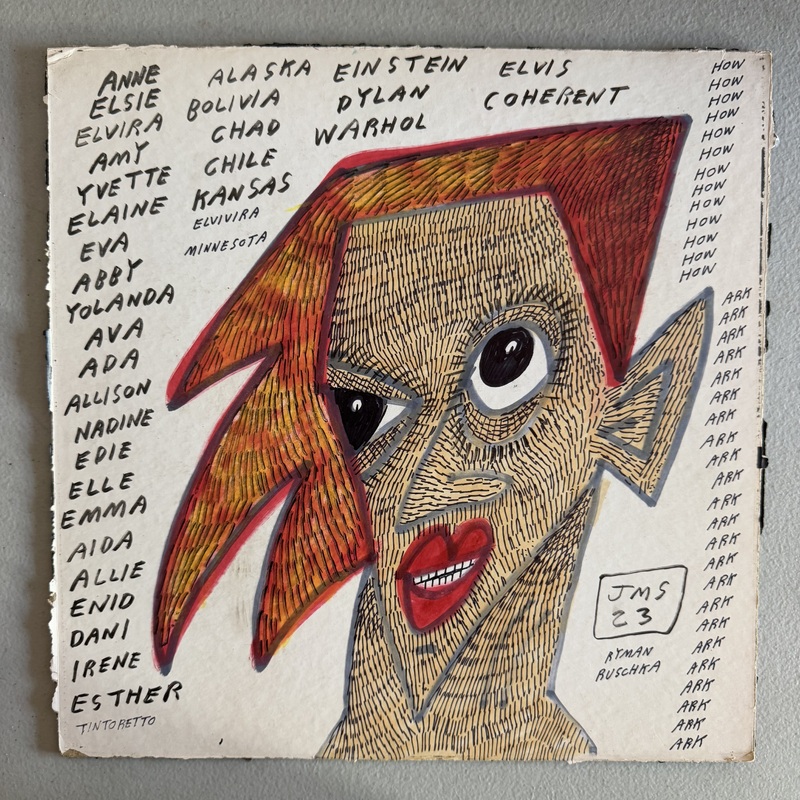 ANNE
ELSIE
ELVIRA
AMY
YVETTE
ELAINE
EVA
ABBY
YOLANDA
AVA
ADA
ALLISON
NADINE
EDIE
ELLE
EMMA
AIDA
ALLIE
ENID
DANI
IRENE
ESTHER
TINTORETTO
ALASKA
BOLIVIA
CHAD
CHILE
KANSAS
ELVIVIRA
MINNESOTA
EINSTEIN
DYLAN
WARHOL
ELVIS
COHERENT
HOW
HOW
HOW
HOW
HOW
HOW
HOW
HOW
HOW
HOW
HOW
HOW
HOW
ARK
ARK
ARK
ARK
ARK
ARK
ARK
ARK
ARK
ARK
ARK
ARK
ARK
ARK
ARK
ARK
ARK
ARK
ARK
ARK
ARK
ARK
JMS
23
RYMAN
RUSCHKA